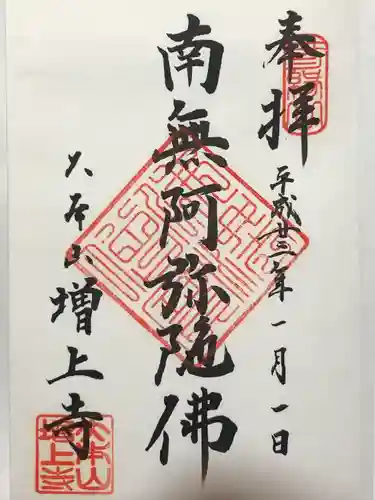 奉拝
平成廿三年一月一日
南無阿弥陀佛
大本山
増上寺
大本山
増上寺